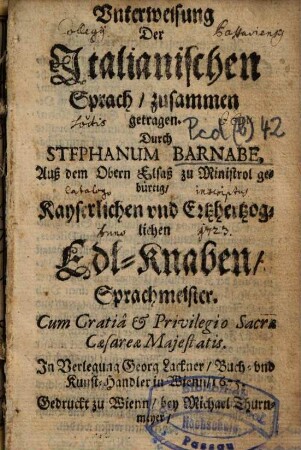 Vnterweisung
Der
Collegij Passaviensis
Italianischen
Sprach / zusammen
getragen.
Pcd (b) 42
Durch
STEPHANUM BARNABE,
Auß dem Obern Elsaß zu Ministrol ge-
bürtig /
Catalogo inscriptus
Kayserlichen vnd Ertzhertzog-
lichen
Anno 1723.
Edl-Knaben /
Sprachmeister.
Cum Gratiâ & Privilegio Sacræ
Cæsareæ Majestatis.
In Verlegung Georg Lackner / Buch- vnd
Kunst-Handler in Wienn /
Gedruckt zu Wienn / bey Michael Thurn-
meyer /
Passau